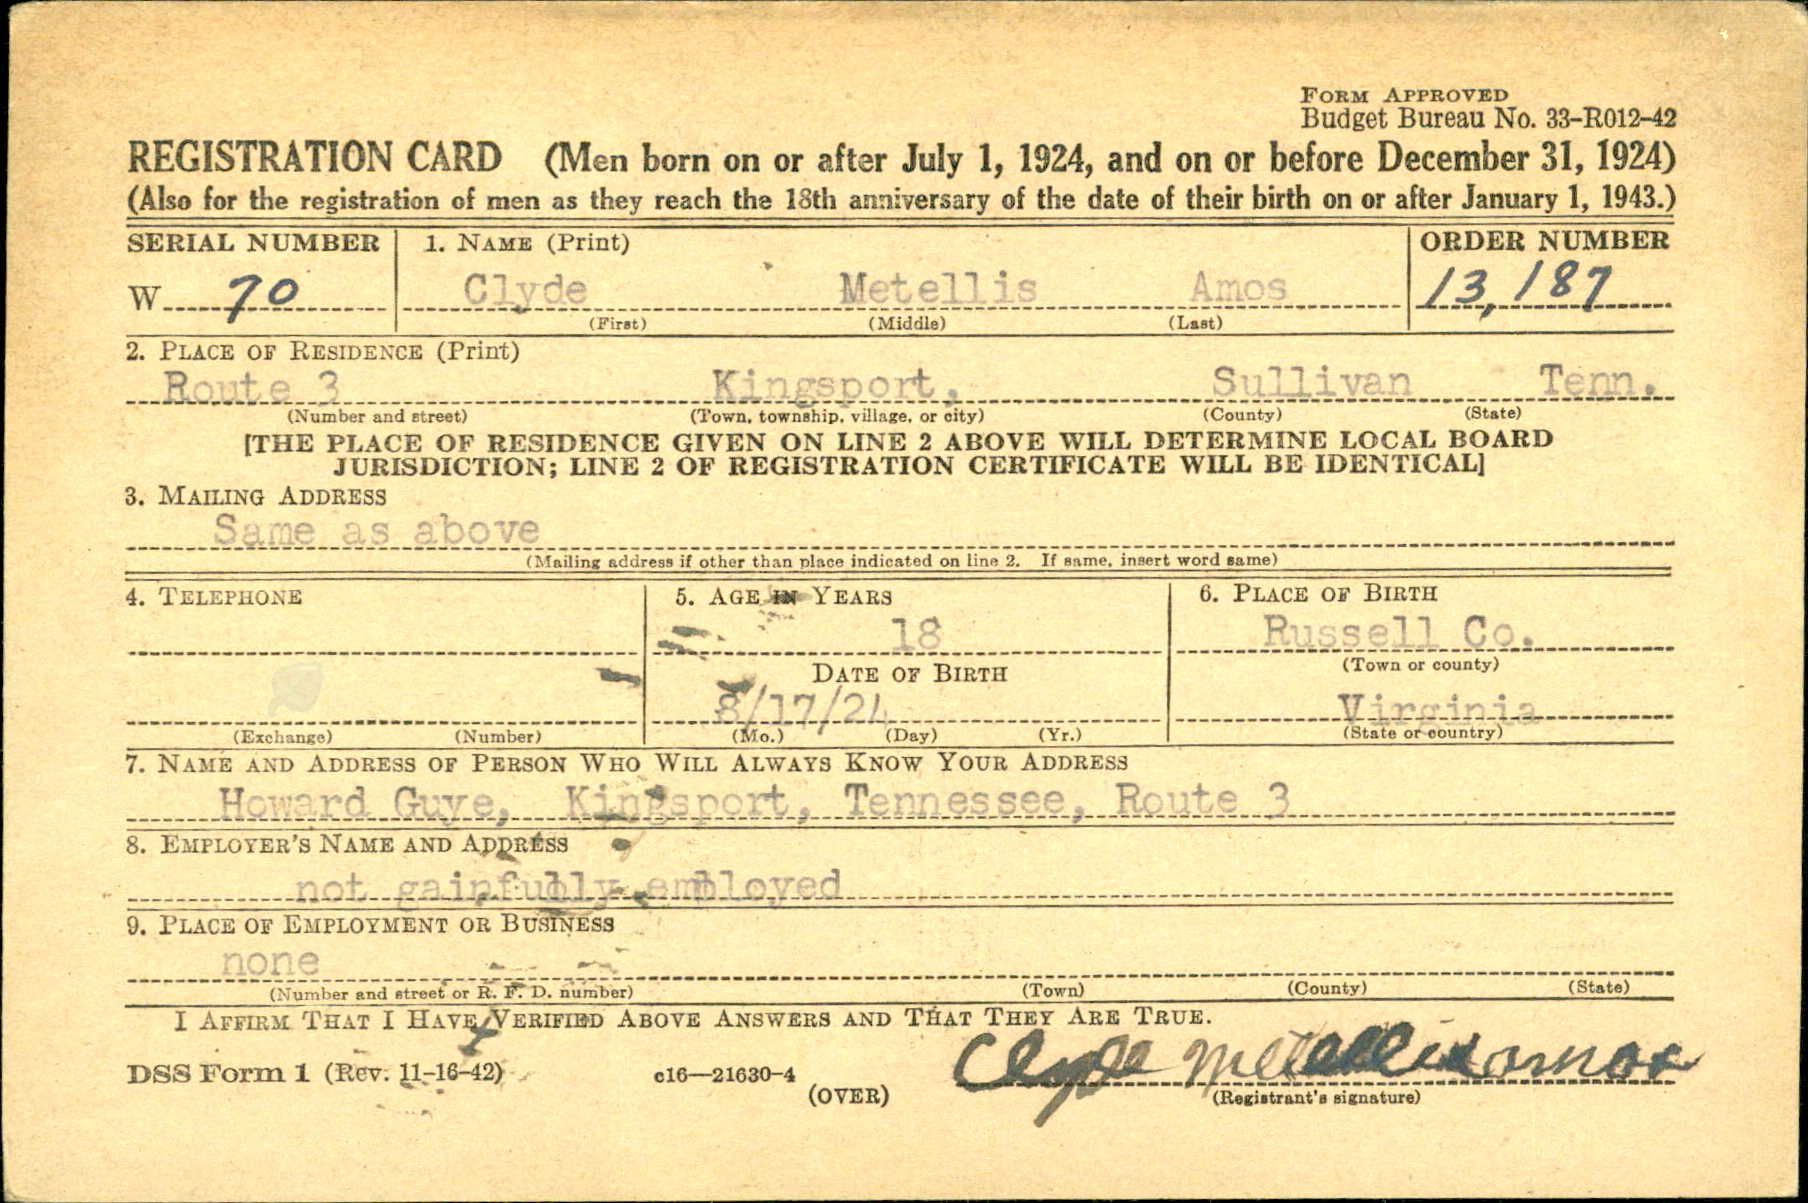 FORM APPROVED
Budget Bureau No. 33-R012-42
REGISTRATION CARD (Men born on or after July 1, 1924, and on or before December 31, 1924)
(Also for the registration of men as they reach the 18th anniversary of the date of their birth on or after January 1, 1943.)
SERIAL NUMBER 1. NAME (Print) ORDER NUMBER
W 70 Clyde Metellis Amos 13,187
(First) (Middle) (Last)
2. PLACE OF RESIDENCE (Print)
Route 3 Kingsport, Sullivan Tenn.
(Number and street) (Town, township, village, or city) (County) (State)
[THE PLACE OF RESIDENCE GIVEN ON LINE 2 ABOVE WILL DETERMINE LOCAL BOARD
JURISDICTION; LINE 2 OF REGISTRATION CERTIFICATE WILL BE IDENTICAL]
3. MAILING ADDRESS
Same as above
(Mailing address if other than place indicated on line 2. If same, insert word same)
4. TELEPHONE 5. AGE IN YEARS 6. PLACE OF BIRTH
18 Russell Co.
DATE OF BIRTH (Town or county)
8/17/24 Virginia
(Exchange) (Number) (Mo.) (Day) (Yr.) (State or country)
7. NAME AND ADDRESS OF PERSON WHO WILL ALWAYS KNOW YOUR ADDRESS
Howard Guye, Kingsport, Tennessee, Route 3
8. EMPLOYER'S NAME AND ADDRESS
not gainfully employed
9. PLACE OF EMPLOYMENT OR BUSINESS
none
(Number and street or R. F. D. number) (Town) (County) (State)
I AFFIRM THAT I HAVE VERIFIED ABOVE ANSWERS AND THAT THEY ARE TRUE.
DSS Form 1 (Rev. 11-16-42) c16—21630-4 Clyde Metellis Amos
(OVER) (Registrant's signature)